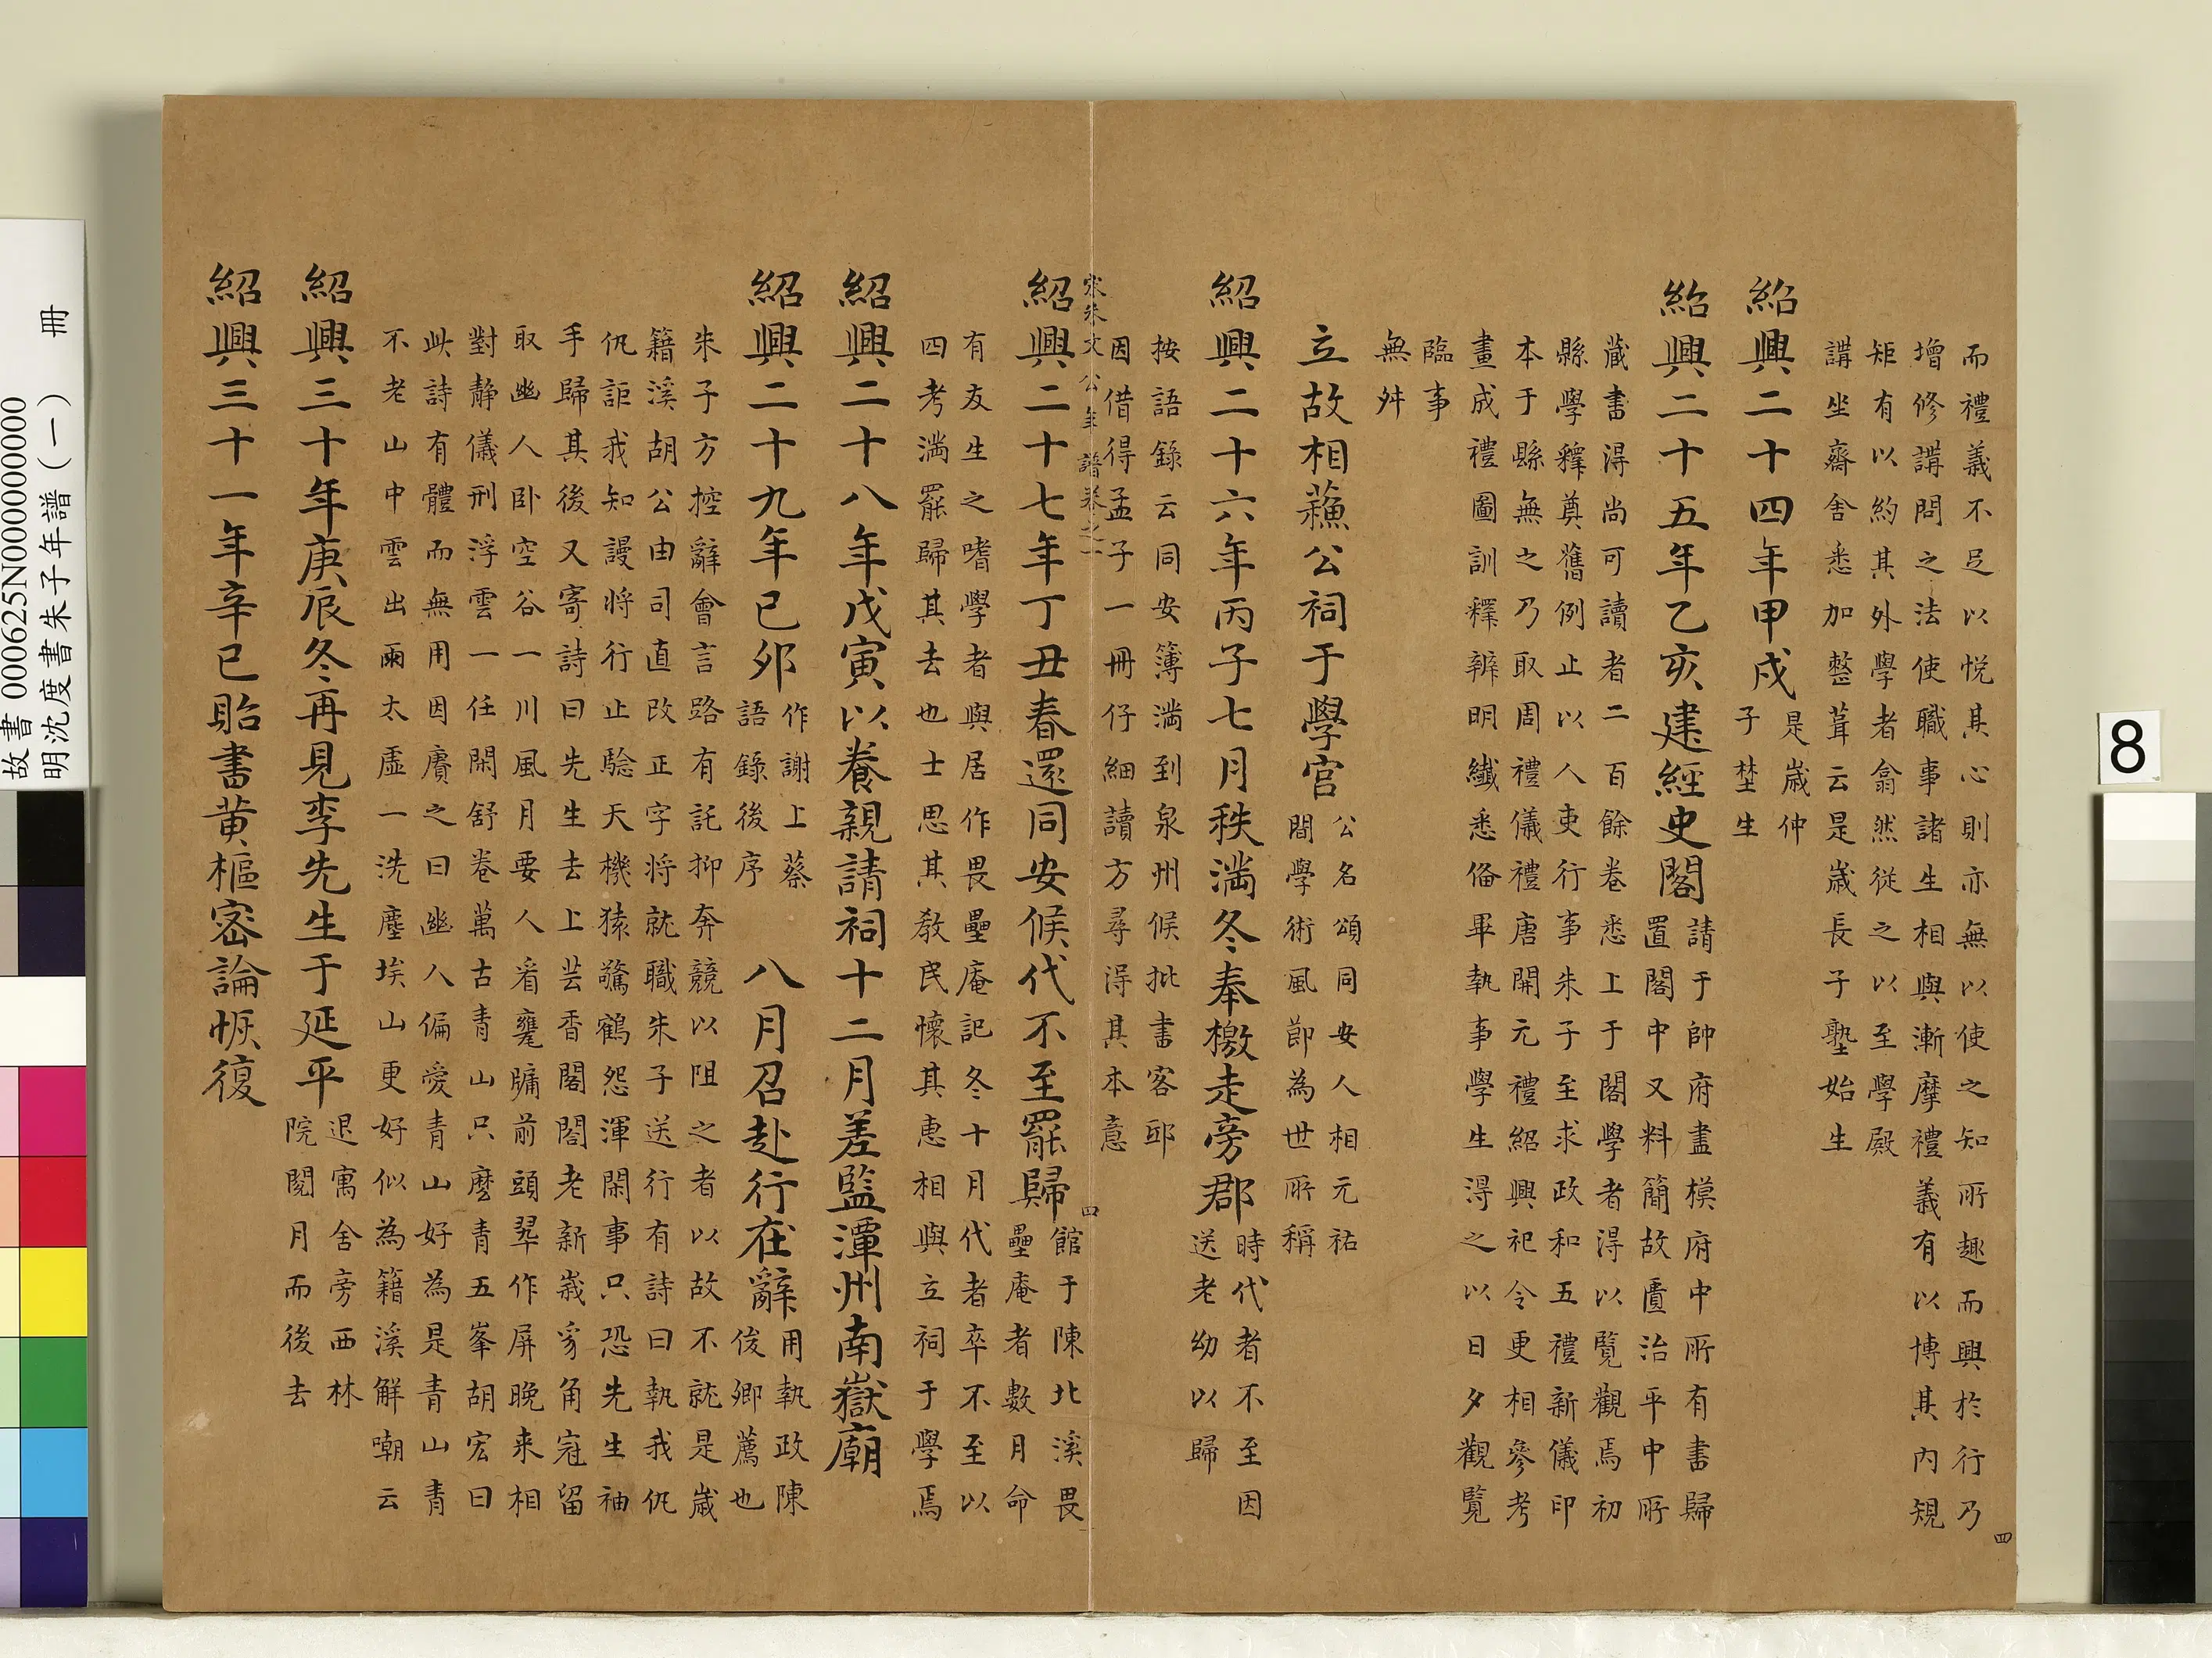 而禮義不足以悅其心則亦無以使之知所趣而興於行乃
增修講問之法使職事諸生相與漸摩禮義有以博其內規
矩有以約其外學者翕然從之以至學殿
講坐齋舍悉加整葺云是歲長子塾始生
紹興二十四年甲戌是歲仲
子埜生
紹興二十五年乙亥建經史閣請于帥府盡模府中所有書歸
置閣中又料簡故匱治平中所
藏書得尚可讀者二百餘卷悉上于閣學者得以覽觀焉初
縣學釋奠舊例止以人吏行事朱子至求政和五禮新儀印
本于縣無之乃取周禮儀禮唐開元禮紹興祀令更相參考
畫成禮圖訓釋辨明纖悉俻畢執事學生得之以日夕觀覽
臨事
無舛
立故相蘓公祠于學宮公名頌同安人相元祐
間學術風節為世所稱
紹興二十六年丙子七月秩滿冬奉檄走旁郡時代者不至因
送老幼以歸
按語錄云同安簿滿到泉州候批書客邸
因借得孟子一冊仔細讀方尋得其本意
宋朱文公年譜卷之一
四
紹興二十七年丁丑春還同安候代不至罷歸館于陳北溪畏
壘庵者數月命
有友生之嗜學者與居作畏壘庵記冬十月代者卒不至以
四考滿罷歸其去也士思其教民懷其惠相與立祠于學焉
紹興二十八年戊寅以養親請祠十二月差監潭州南嶽廟
紹興二十九年己卯作謝上蔡
語錄後序
八月召赴行在辭用執政陳
俊卿薦也
朱子方控辭會言路有託抑奔競以阻之者以故不就是歲
籍溪胡公由司直改正字將就職朱子送行有詩曰執我仇
仇詎我知謾將行止驗天機猿驚鶴怨渾閑事只恐先生袖
手歸其後又寄詩曰先生去上芸香閣閣老新峩豸角冠留
取幽人臥空谷一川風月要人看甕牖前頭翠作屏晚來相
對静儀刑浮雲一任閑舒卷萬古青山只麼青五峯胡宏曰
此詩有體而無用因賡之曰幽人偏愛青山好為是青山青
不老山中雲出雨太虛一洗塵埃山更好似為籍溪解嘲云
紹興三十年庚辰冬再見李先生于延平退寓舍旁西林
院閱月而後去
紹興三十一年辛巳貽書黄樞密論恢復
四
8
故書 000625N000000000
明沈度書朱子年譜（一） 冊